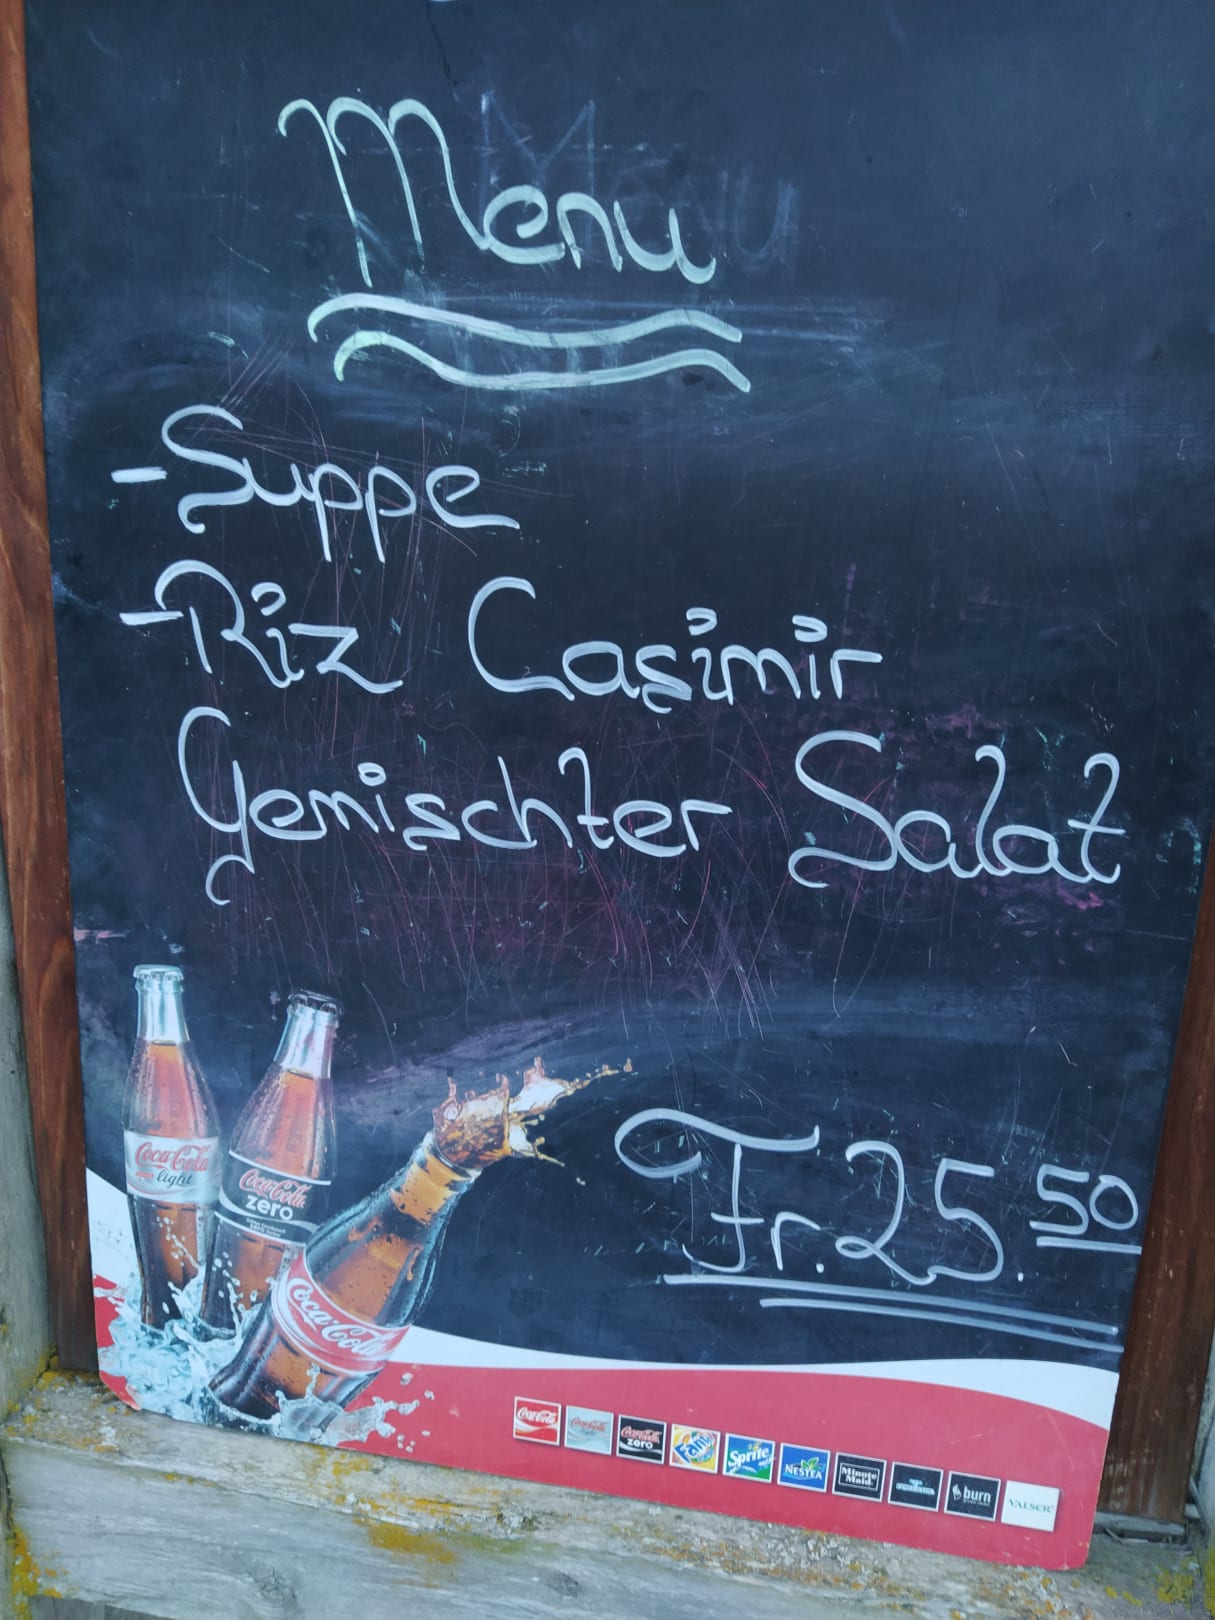 Menu
- Suppe
- Riz Casimir
Gemischter Salat
Fr. 25.50
Coca-Cola
light
Coca-Cola
zero
Coca-Cola
Coca-Cola
Coca-Cola
zero
Fanta
Sprite
NESTEA
Minute Maid
burn
VALSER